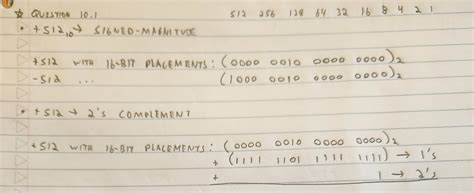 QUESTION 10.1 512 256 128 64 32 16 8 4 2 1
• +512₁₀ → SIGNED-MAGNITUDE
+512 WITH 16-BIT PLACEMENTS: (0000 0010 0000 0000)₂
-512 ... (1000 0010 0000 0000)₂
• +512 → 2's COMPLEMENT
+512 WITH 16-BIT PLACEMENTS: (0000 0010 0000 0000)₂
+ (1111 1101 1111 1111) → 1's
+ 1 → 2's